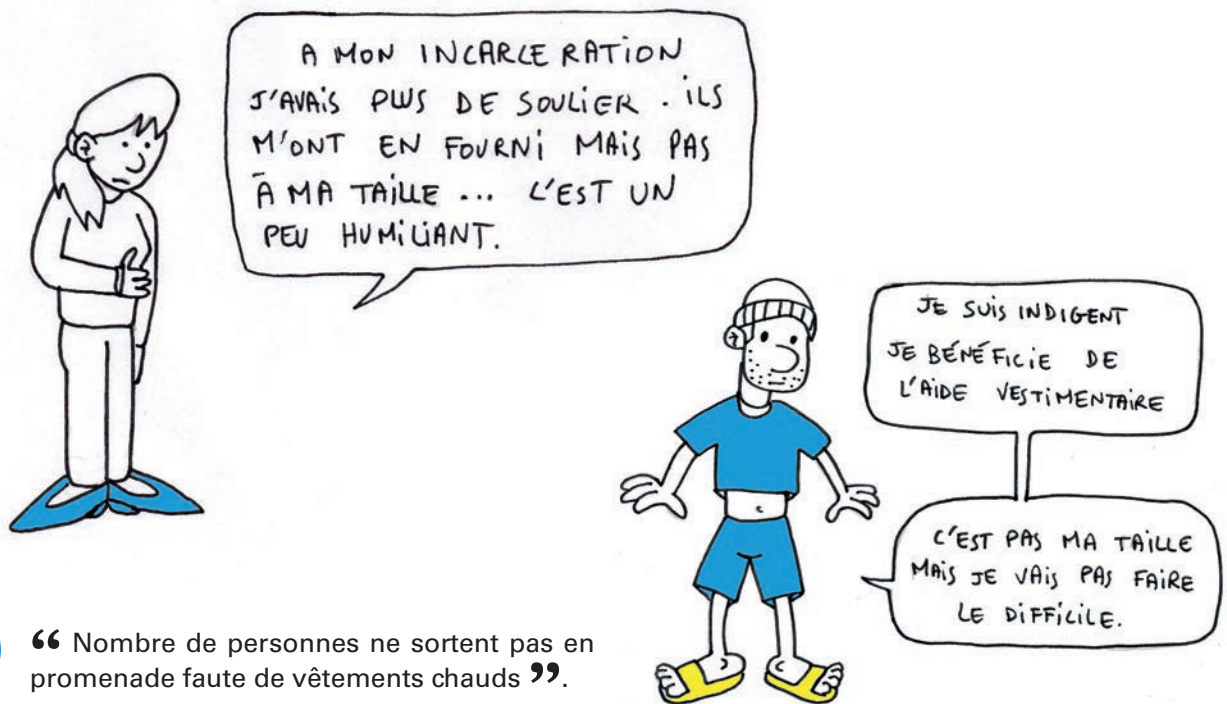 A MON INCARCERATION
J'AVAIS PLUS DE SOULIER. ILS
M'ONT EN FOURNI MAIS PAS
À MA TAILLE... L'EST UN
PEU HUMILIANT.
JE SUIS INDIGENT
JE BÉNÉFICIE DE
L'AIDE VESTIMENTAIRE
C'EST PAS MA TAILLE
MAIS JE VAIS PAS FAIRE
LE DIFFICILE.
“ Nombre de personnes ne sortent pas en
promenade faute de vêtements chauds ”.